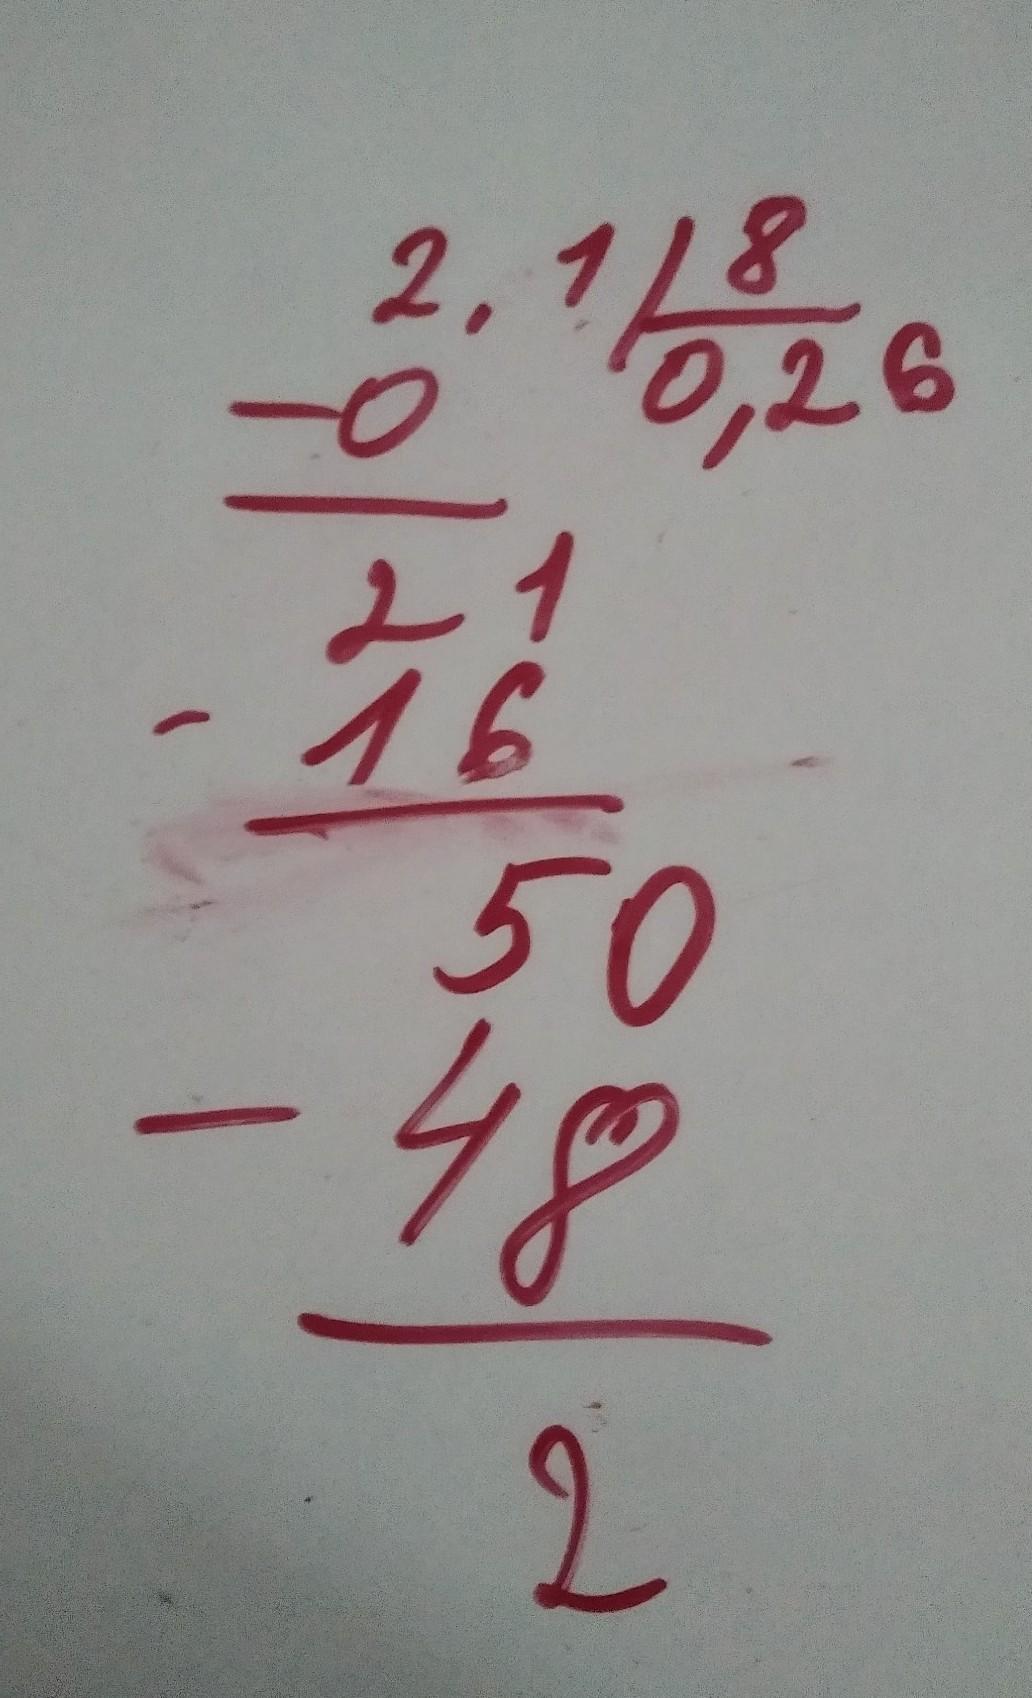 2,1 8
-0 0,26
21
- 16
50
- 48
2